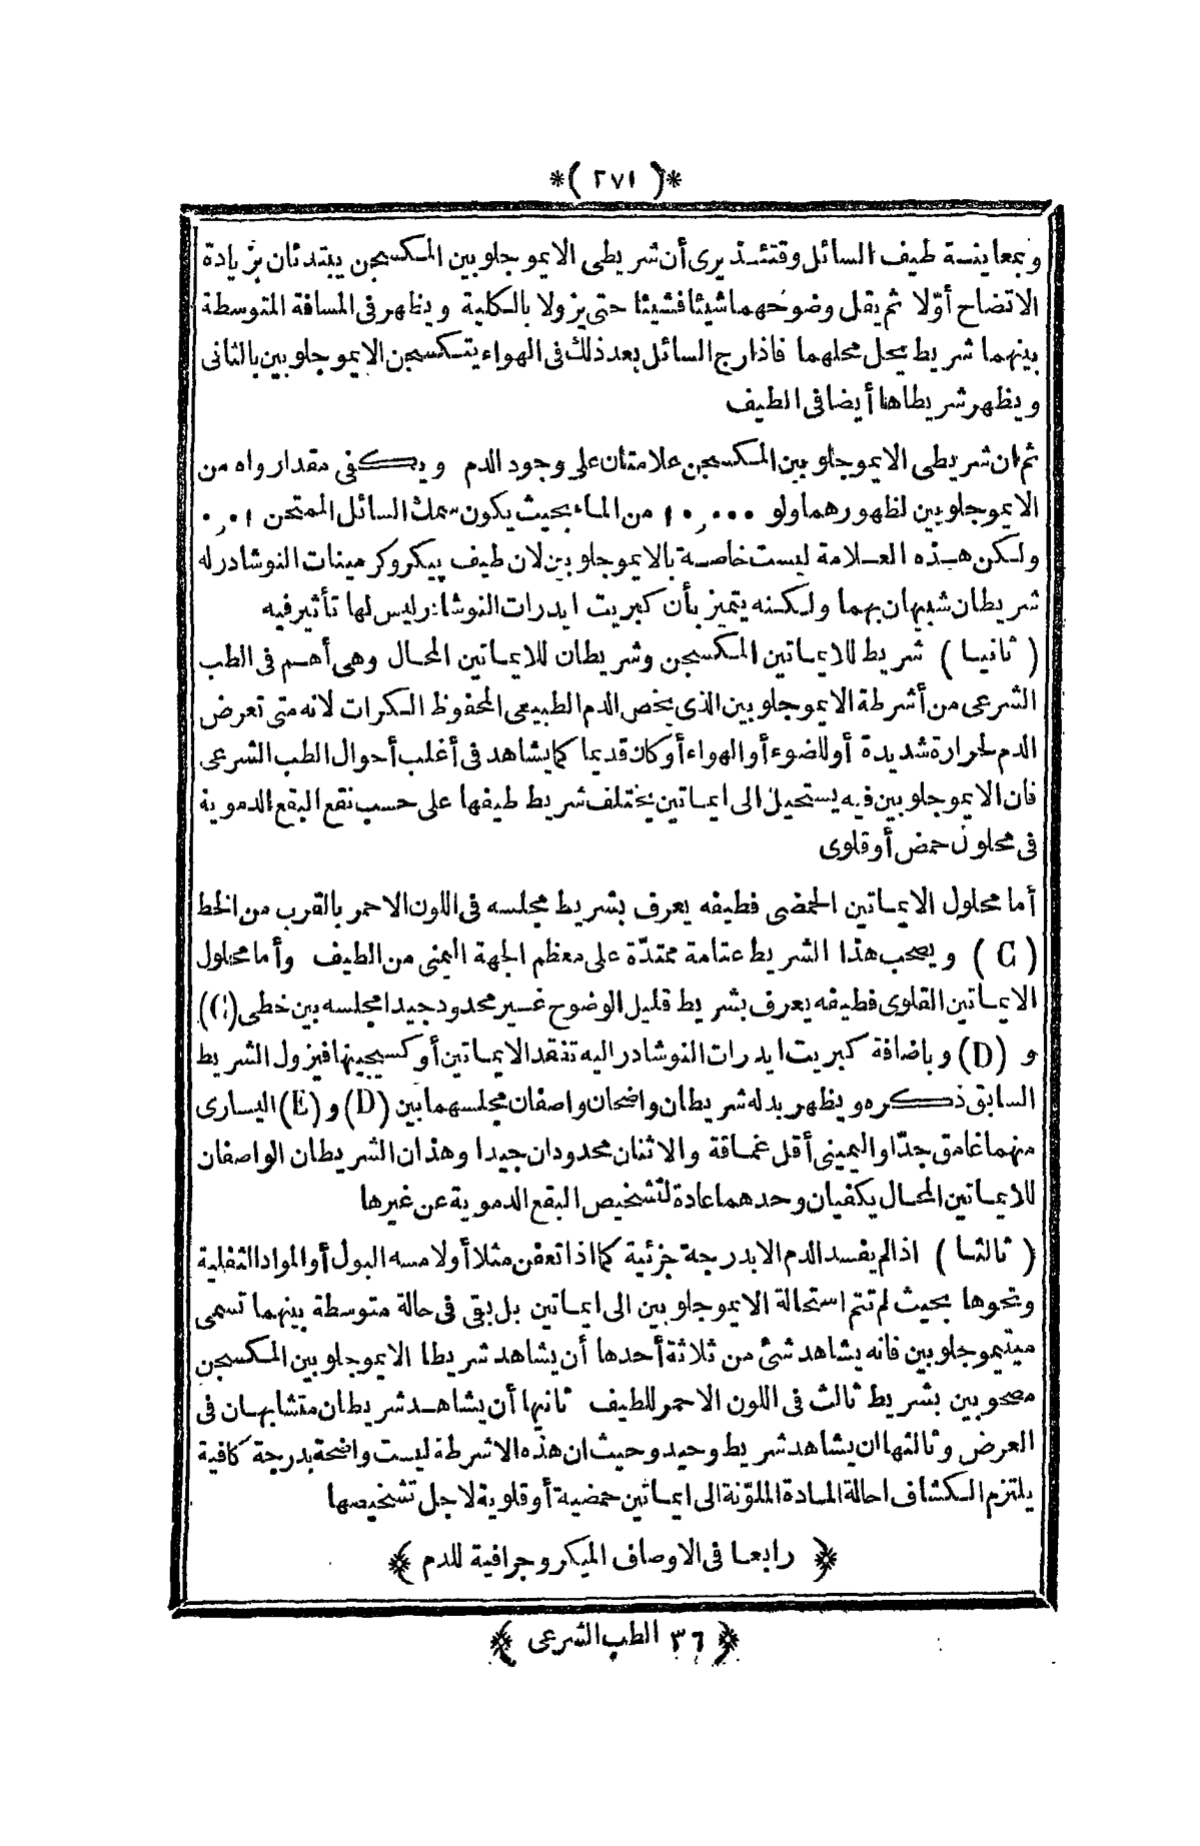 *( ٢٧١ )*
وبمعاينة طيف السائل وقتئذ يرى أن شريطى الايموجلوبين المكسجن يبتدئان بزيادة
الاتضاح أوّلا ثم يقل وضوحهما شيئا فشيئا حتى يزولا بالكلية ويظهر فى المسافة المتوسطة
بينهما شريط يحل محلهما فاذا رج السائل بعد ذلك فى الهواء يتكسجن الايموجلوبين بالثانى
ويظهر شريطاها أيضا فى الطيف
ثم ان شريطى الايموجلوبين المكسجن علامتان على وجود الدم ويكفى مقدار واه من
الايموجلوبين لظهورهما ولو ١٠,٠٠٠ من الماء بحيث يكون سمك السائل الممتحن ٠,٠١
ولكن هذه العلامة ليست خاصة بالايموجلوبين لان طيف بيكروكرمينات النوشادر له
شريطان شبيهان بهما ولكنه يتميز بأن كبريت ايدرات النوشادر ليس لها تأثير فيه
( ثانيا ) شريط للايماتين المكسجن وشريطان للايماتين المحال وهى أهم فى الطب
الشرعى من أشرطة الايموجلوبين الذى يخص الدم الطبيعى المحفوظ الكرات لانه متى تعرض
الدم لحرارة شديدة أو للضوء أو الهواء أو كان قديما كما يشاهد فى أغلب أحوال الطب الشرعى
فان الايموجلوبين فيه يستحيل الى ايماتين يختلف شريط طيفها على حسب نقع البقع الدموية
فى محلول حمض أو قلوى
أما محلول الايماتين الحمضى فطيفه يعرف بشريط مجلسه فى اللون الاحمر بالقرب من الخط
( C ) ويصحب هذا الشريط عتامة ممتدّة على معظم الجهة اليمنى من الطيف وأما محلول
الايماتين القلوى فطيفه يعرف بشريط قليل الوضوح غير محدود جيدا مجلسه بين خطى (C)
و (D) وباضافة كبريت ايدرات النوشادر اليه تفقد الايماتين أوكسيجينها فيزول الشريط
السابق ذكره ويظهر بدله شريطان واضحان واصفان مجلسهما بين (D) و (E) اليسارى
منهما غامق جدّا واليمينى أقل غماقة والاثنان محدودان جيدا وهذان الشريطان الواصفان
للايماتين المحال يكفيان وحدهما عادة لتشخيص البقع الدموية عن غيرها
( ثالثا ) اذا لم يفسد الدم الا بدرجة جزئية كما اذا تعفن مثلا أو لامسه البول أو المواد الثفلية
ونحوها بحيث لم تتم استحالة الايموجلوبين الى ايماتين بل بقى فى حالة متوسطة بينهما تسمى
ميتيموجلوبين فانه يشاهد شئ من ثلاثة أحدها أن يشاهد شريطا الايموجلوبين المكسجن
مصحوبين بشريط ثالث فى اللون الاحمر للطيف ثانيها أن يشاهد شريطان متشابهان فى
العرض وثالثها ان يشاهد شريط وحيد وحيث ان هذه الاشرطة ليست واضحة بدرجة كافية
يلتزم الكشاف احالة المادة الملوّنة الى ايماتين حمضية أو قلوية لاجل تشخيصها
﴿ رابعا فى الاوصاف الميكروجرافية للدم ﴾
﴿ ٣٦ الطب الشرعى ﴾